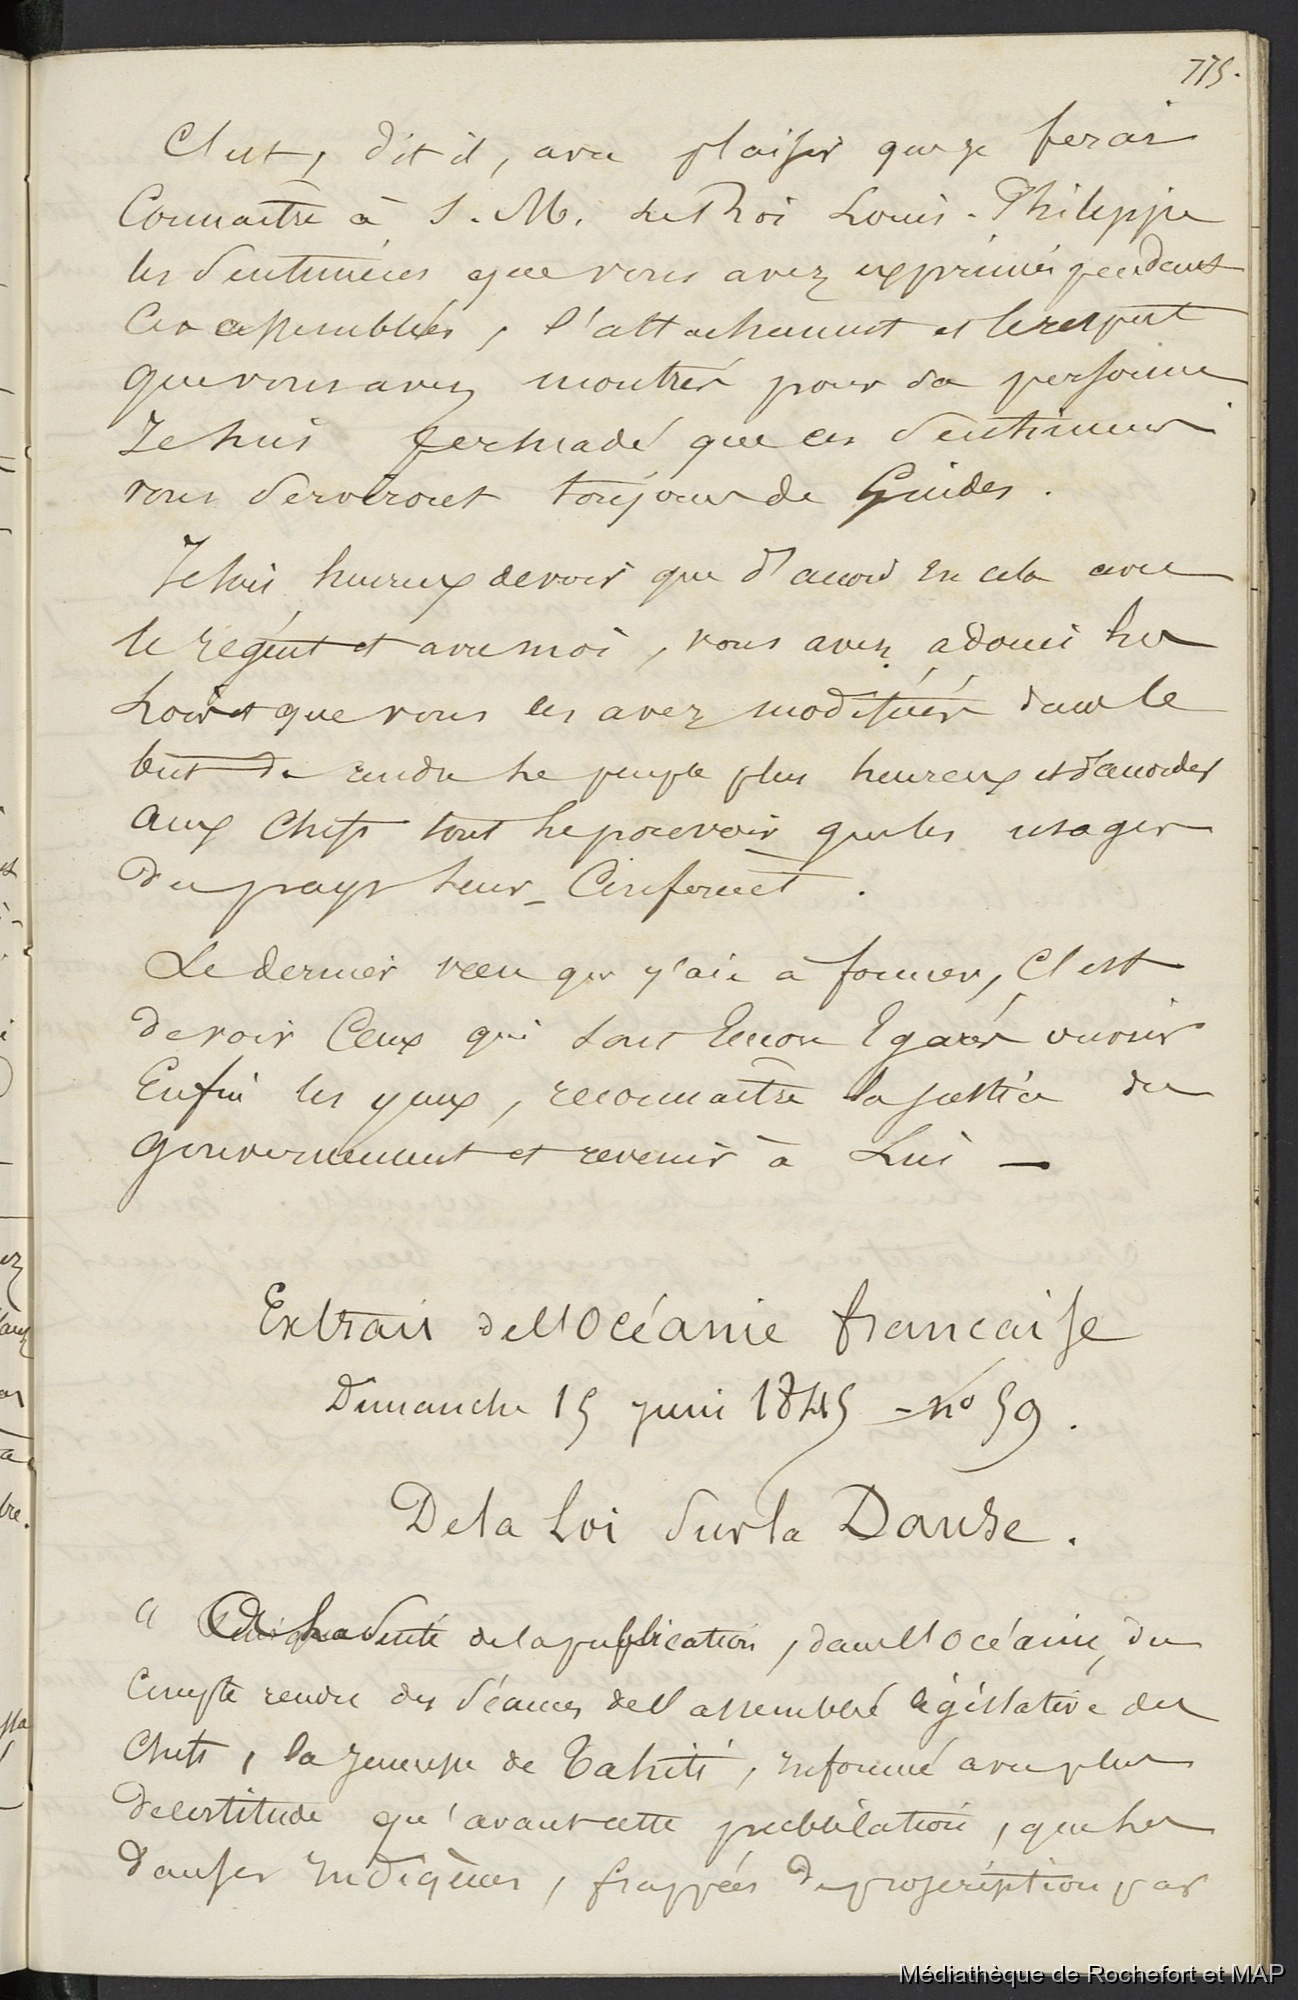 775.
C'est, dit il, avec plaisir que je ferai
Connaitre à S. M. Le Roi Louis-Philippe
les Sentiments que vous avez exprimés pendant
Ces assemblées, l'attachement et le respect
que vous avez montrés pour sa personne
Je suis persuadé que ces Sentiments
vous Serviront toujours de Guides.
Je suis heureux de voir que d'accord en cela avec
le régent et avec moi, vous avez adouci les
Lois et que vous les avez modifiées dans le
but de rendre le peuple plus heureux et d'accorder
aux Chefs tout le pouvoir que les usages
du pays leur Confèrent.
Le dernier voeu que j'aie à former, C'est
de voir Ceux qui sont Encore Egarés ouvrir
Enfin les yeux, reconnaître la justice du
gouvernement et revenir à Lui —
Extrait de l'Océanie francaise
Dimanche 15 juin 1845 - no 59.
De la Loi Sur la Danse.
" A la Suite de la publication, dans l'Océanie, du
Compte rendu des Séances de l'assemblée législative des
Chefs, la jeunesse de Tahiti, informée avec plus
de certitude qu'avant cette publication, que les
danses indigènes, frappées de proscription par
Médiathèque de Rochefort et MAP